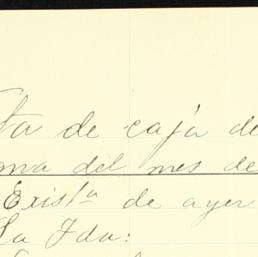 ta de caja de
ana del mes de
Exist.ª de ayer
La Fda: